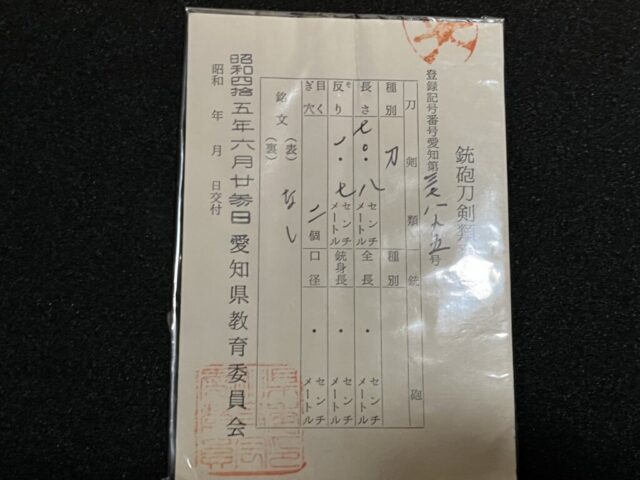 銃砲刀剣類
登録記号番号愛知第三七八六五号
刀剣類
種別 刀
長さ 七〇・八センチメートル
反り 一・七センチメートル
目くぎ穴 二個
銘文 (表) なし
(裏)
銃砲
種別
全長 ・ センチメートル
銃身長 ・ センチメートル
口径 ・ センチメートル
昭和四拾五年六月廿参日
昭和 年 月 日交付
愛知県教育委員会